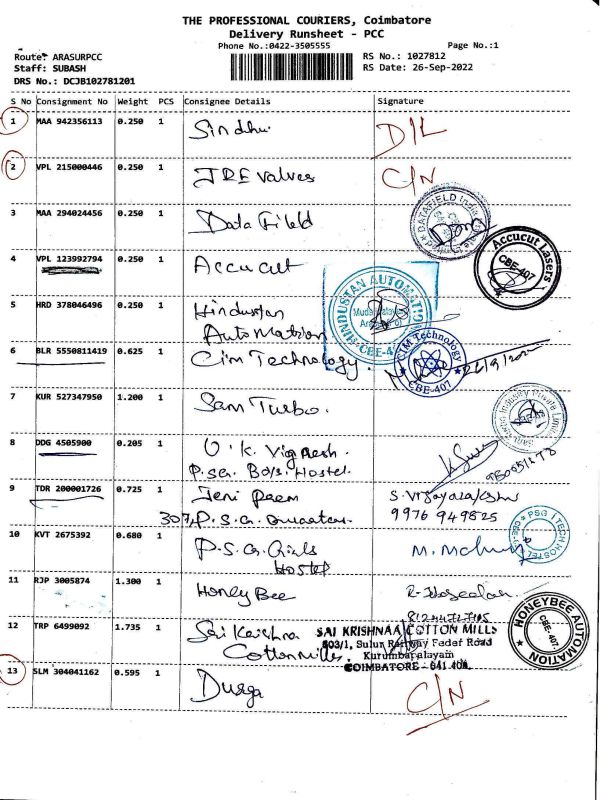 THE PROFESSIONAL COURIERS, Coimbatore
Delivery Runsheet - PCC
Phone No.:0422-3505555
Page No.:1
Route: ARASURPCC
RS No.: 1027812
Staff: SUBASH
RS Date: 26-Sep-2022
DRS No.: DCJB102781201
S No Consignment No Weight PCS Consignee Details Signature
1 MAA 942356113 0.250 1 Sindhu D/L
2 VPL 215000446 0.250 1 JRE Valves C/N
3 MAA 294024456 0.250 1 Data Fileld
DATAFIELD India
4 VPL 123992794 0.250 1 Accucut
Accucut Lasers
CBE-407
5 HRD 378046496 0.250 1 Hindustan
Automation
HINDUSTAN AUTOMATION
CBE-4
6 BLR 5550811419 0.625 1 Cim Technology
CIM Technology
CBE-407
26/9/2022
7 KUR 527347950 1.200 1 Sam Turbo.
Sam Turbo Industry Private Limited
8 DDG 4505900 0.205 1 U.K. Vignesh.
P.SG. Boys Hostel.
9 TDR 200001726 0.725 1 Jeni Preem
307, P.S.G. Quarters.
9976 949825
10 KVT 2675392 0.680 1 P.S.G. Girls
Hostel
PSG ITECH HOSTEL
11 RJP 3005874 1.300 1 Honey Bee
HONEYBEE AUTOMATION
CBE-407.
12 TRP 6499092 1.735 1 Sai Krishna
Cotton Mills.
SAI KRISHNAA COTTON MILLS
603/1, Sulur Railway Feder Road
Kurumbapalayam
COIMBATORE - 641 401.
13 SLM 304041162 0.595 1 Durga C/N